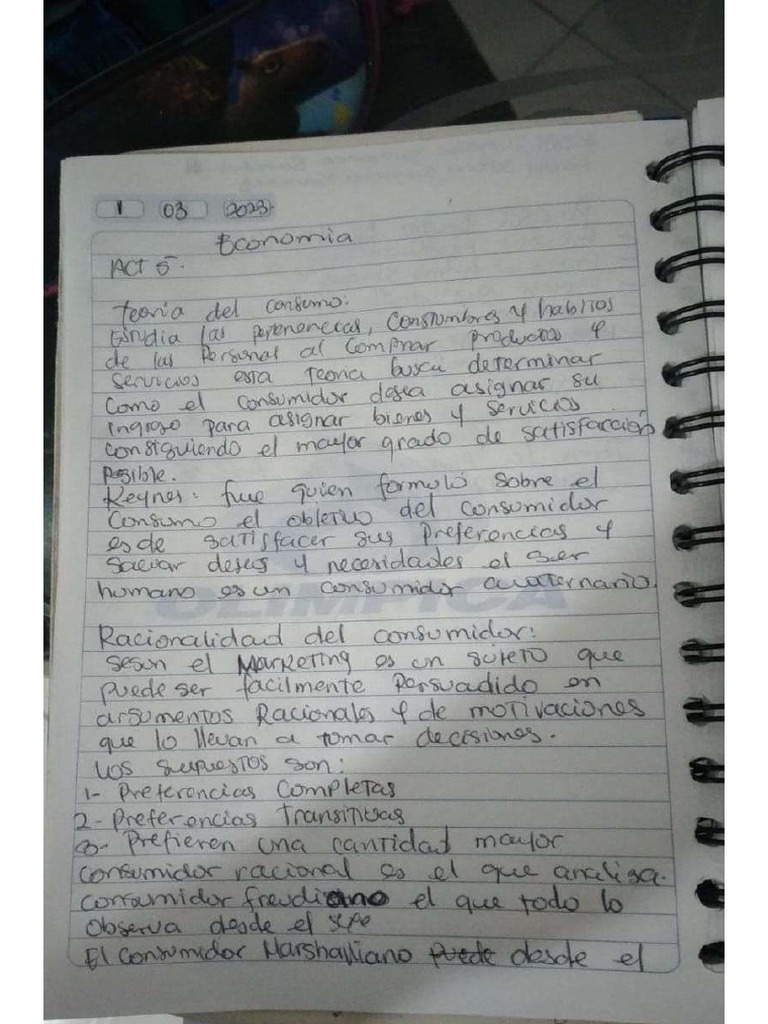 1 03 2023
Economia
ACT 5.
Teoria del consumo:
Estudia las pertenencias, Constumbres y habitos
de las Personal al Comprar Productos y
Servicios esta Teoria busca determinar
Como el consumidor desea asignar su
Ingreso para asignar bienes y servicios
consiguiendo el mayor grado de satisfacción
Posible.
Keynes: fue quien formuló sobre el
Consumo el objetivo del consumidor
es de satisfacer sus Preferencias y
Saciar deseos y necesidades el ser
humano es un consumidor cuaternario.
OLIMPICA
Racionalidad del consumidor:
Segun el Marketing es un sujeto que
puede ser facilmente Persuadido en
argumentos Racionales y de motivaciones
que lo llevan a tomar decisiones.
Los supuestos son:
1- Preferencias Completas
2- Preferencias Transitivas
3- Prefieren una cantidad mayor
Consumidor racional es el que analisa.
Consumidor freudiano el que todo lo
Observa desde el
El Consumidor Marshalliano puede desde el